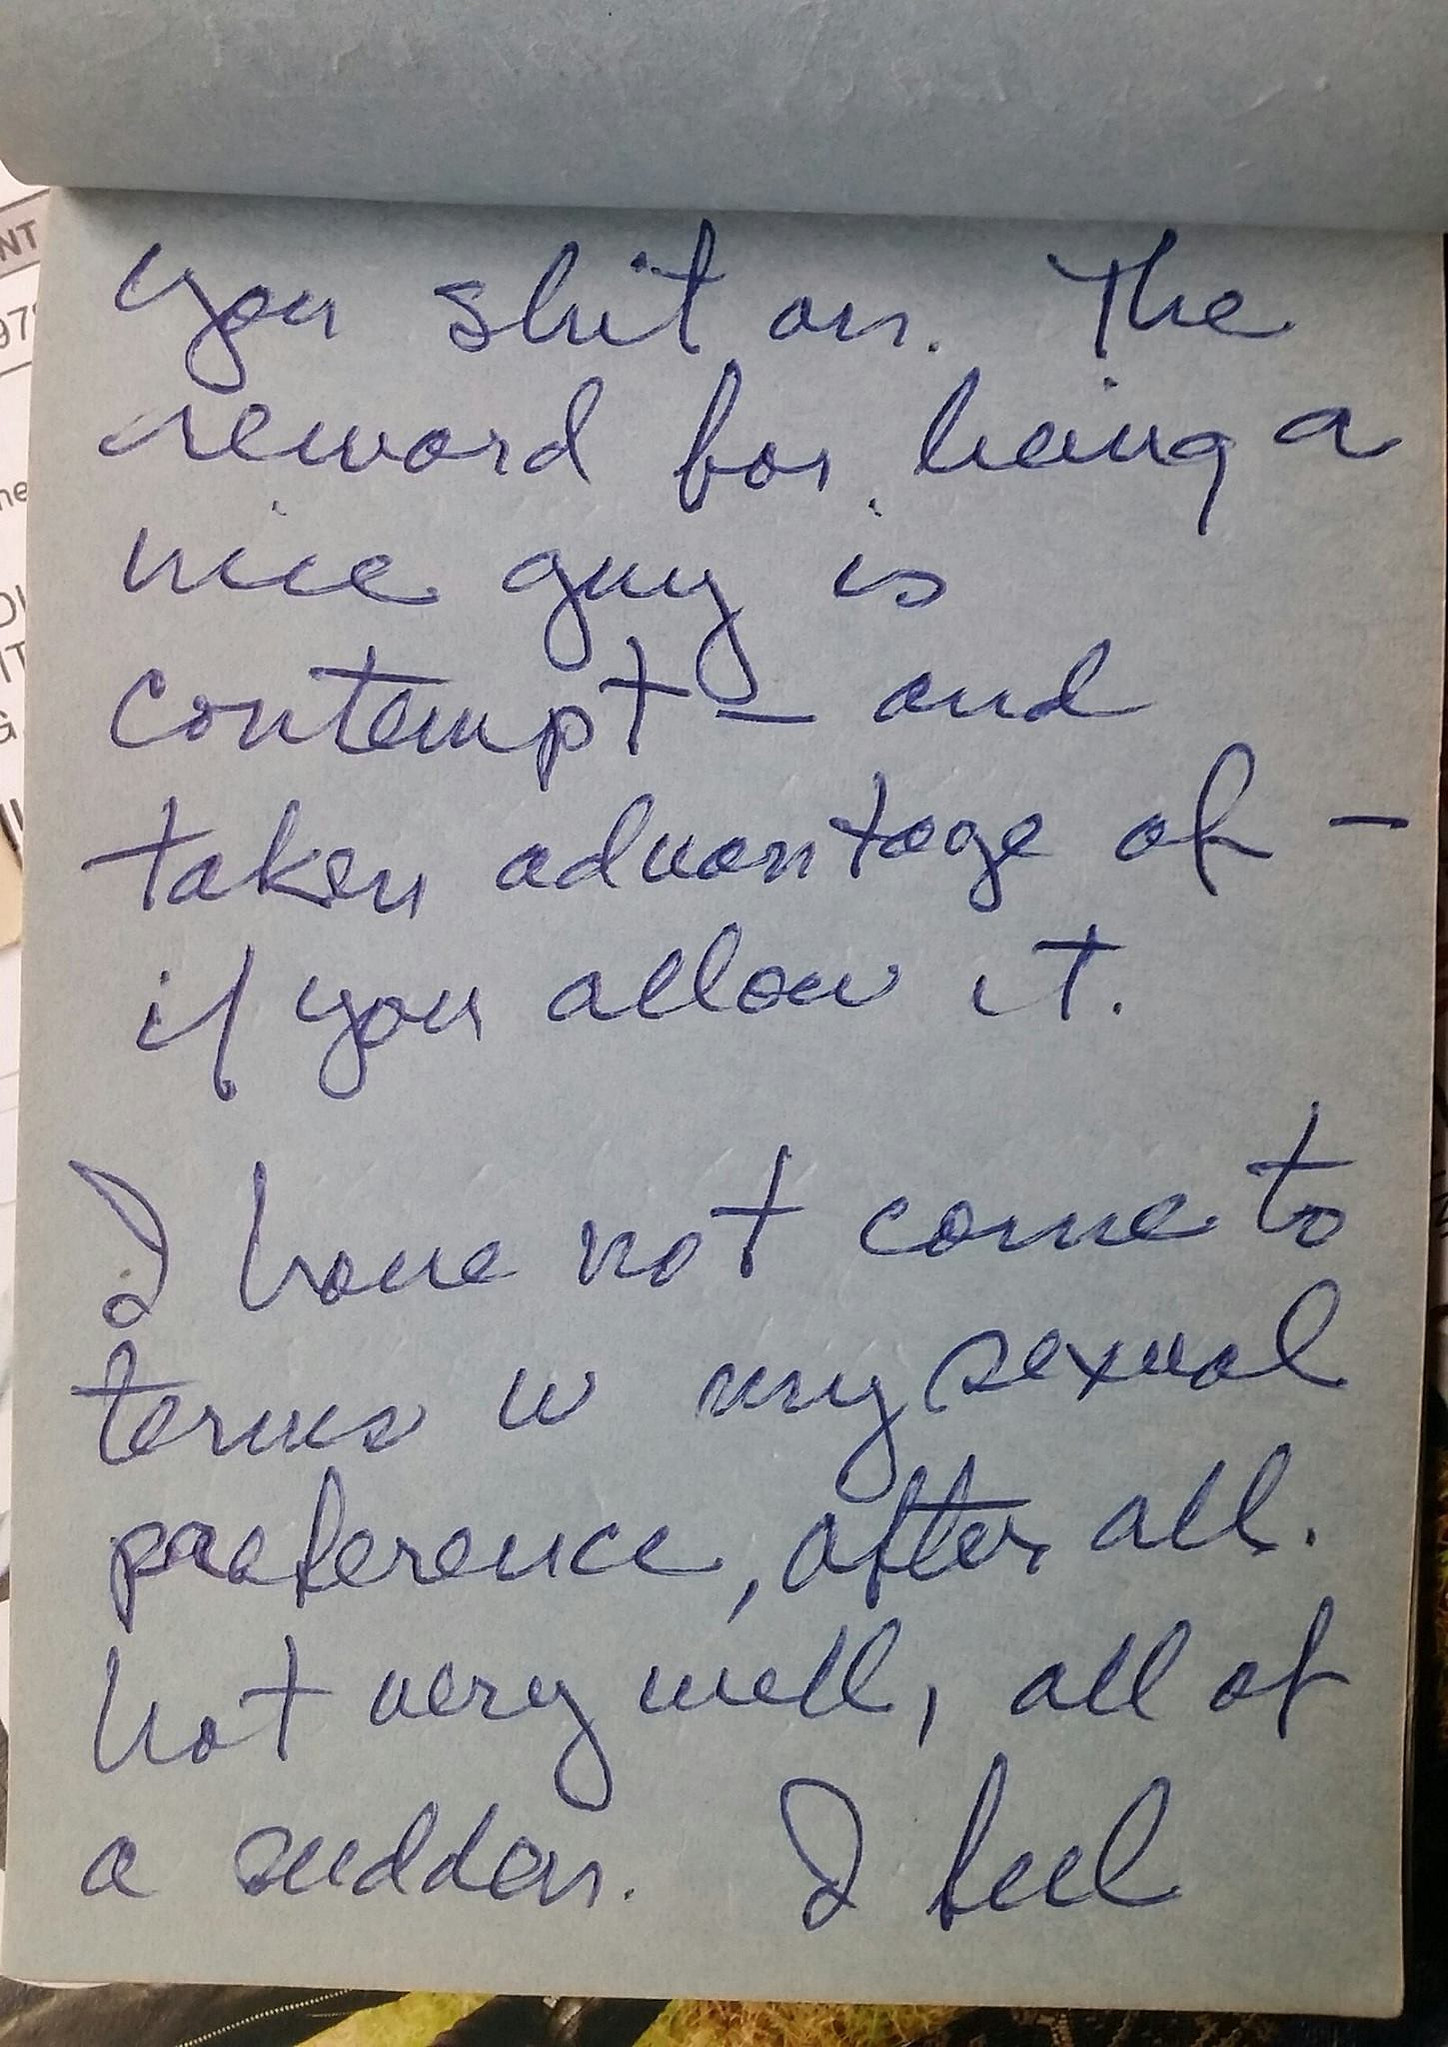 you shit on. The
reward for being a
nice guy is
contempt – and
taken advantage of –
if you allow it.
I have not come to
terms w my sexual
preference, after all.
Not very well, all of
a sudden. I feel
NT